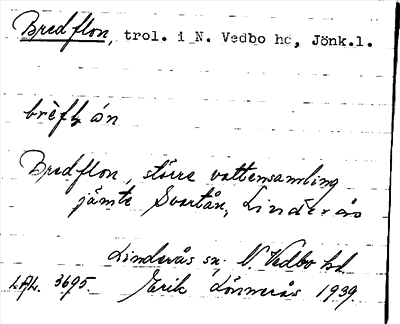 Bredflon, trol. i N. Vedbo hd, Jönk.l.
Bredflon, större vattensamling
jämte Svartån, Linderås
Linderås sn. N. Vedbo hd.
3695. Erik Lönnerås 1939.